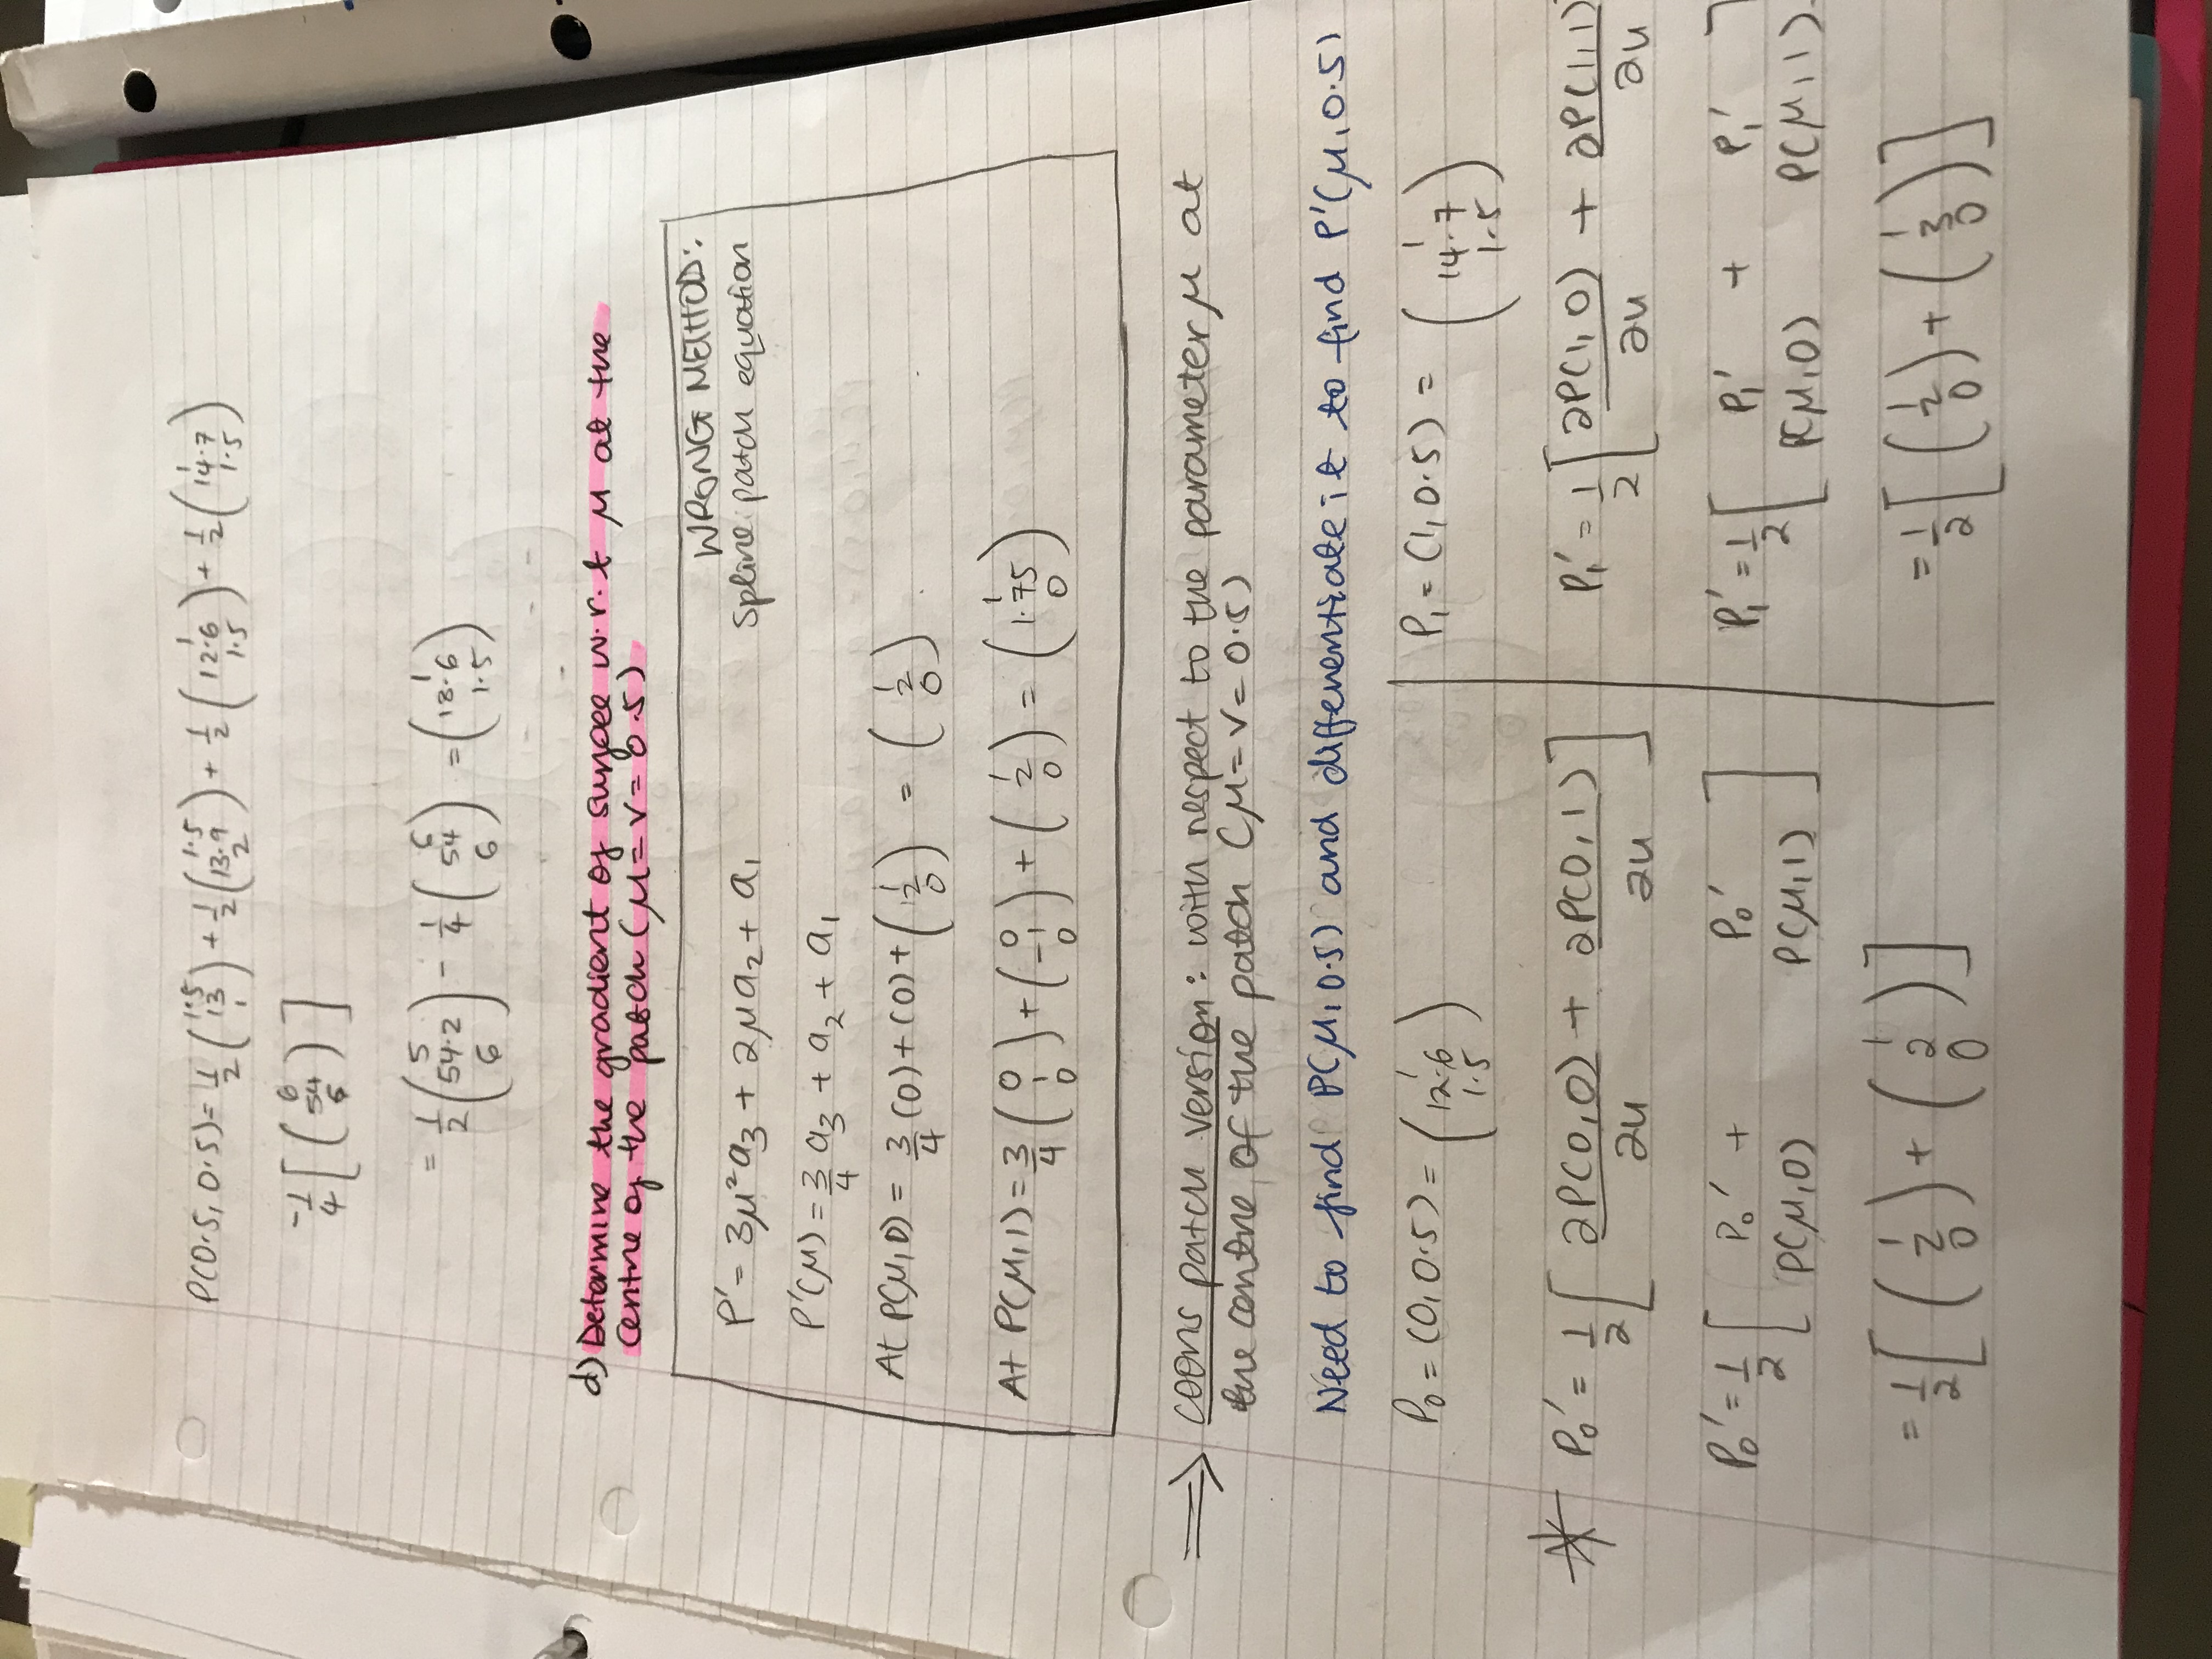 P(0.5, 0.5) = 1/2 (1.5 13 1) + 1/2 (1.5 13.9 2) + 1/2 (1 12.6 1.5) + 1/2 (1 14.7 1.5)
-1/4 [ (6 54 6) ]
= 1/2 (5 54.2 6) - 1/4 (6 54 6) = (1 13.6 1.5)
d) Determine the gradient of surface w.r.t μ at the
centre of the patch (μ = v = 0.5)
WRONG METHOD:
Spline patch equation
P' = 3μ²a₃ + 2μa₂ + a₁
P'(μ) = 3/4 a₃ + a₂ + a₁
At P(μ,0) = 3/4 (0) + (0) + (1 2 0) = (1 2 0)
At P(μ,1) = 3/4 (0 1 0) + (0 -1 0) + (1 2 0) = (1 1.75 0)
⇒ COONS patch version: with respect to the parameter μ at
the centre of the patch (μ = v = 0.5)
Need to find P(μ,0.5) and differentiate it to find P'(μ,0.5)
P₀ = (0, 0.5) = (1 12.6 1.5)
* P₀' = 1/2 [ ∂P(0,0)/∂u + ∂P(0,1)/∂u ]
P₀' = 1/2 [ P₀' + P₀' ]
P(μ,0) P(μ,1)
= 1/2 [ (1 2 0) + (1 2 0) ]
P₁ = (1, 0.5) = (1 14.7 1.5)
P₁' = 1/2 [ ∂P(1,0)/∂u + ∂P(1,1)/∂u
P₁' = 1/2 [ P₁' + P₁' ]
P(μ,0) P(μ,1)
= 1/2 [ (1 2 0) + (1 3 0) ]